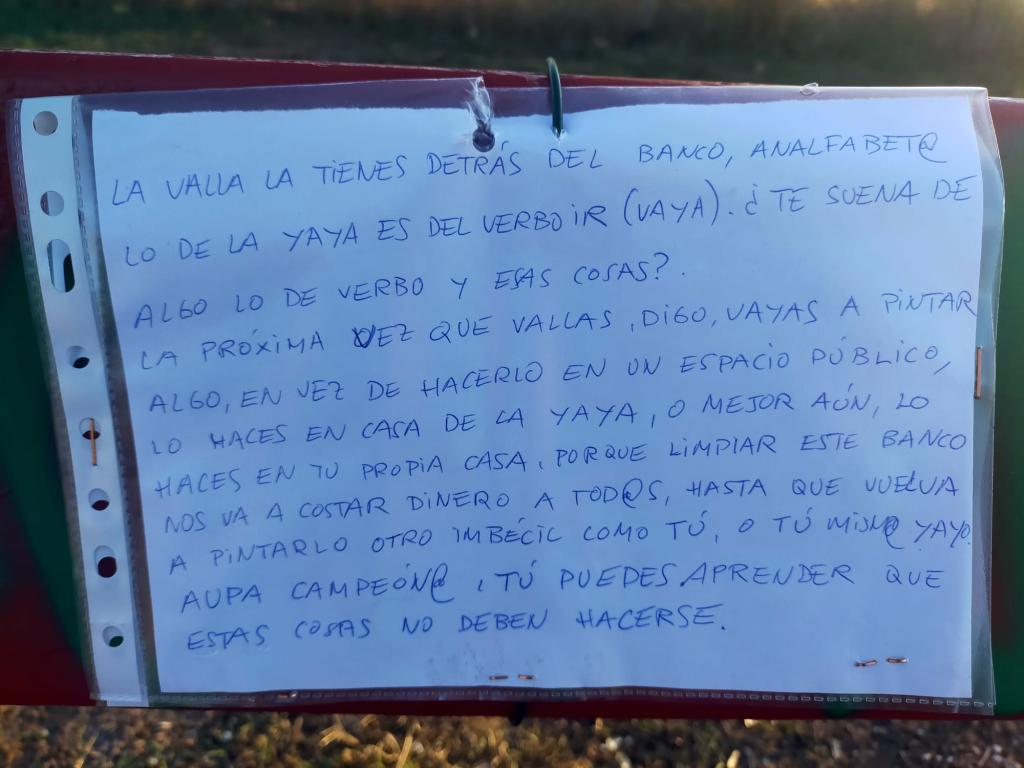 LA VALLA LA TIENES DETRÁS DEL BANCO, ANALFABET@
LO DE LA YAYA ES DEL VERBO IR (VAYA). ¿TE SUENA DE
ALGO LO DE VERBO Y ESAS COSAS?.
LA PRÓXIMA VEZ QUE VALLAS, DIGO, VAYAS A PINTAR
ALGO, EN VEZ DE HACERLO EN UN ESPACIO PÚBLICO,
LO HACES EN CASA DE LA YAYA, O MEJOR AÚN, LO
HACES EN TU PROPIA CASA, PORQUE LIMPIAR ESTE BANCO
NOS VA A COSTAR DINERO A TOD@S, HASTA QUE VUELVA
A PINTARLO OTRO IMBÉCIL COMO TÚ, O TÚ MISM@ YAYO.
AUPA CAMPEÓN@, TÚ PUEDES APRENDER QUE
ESTAS COSAS NO DEBEN HACERSE.